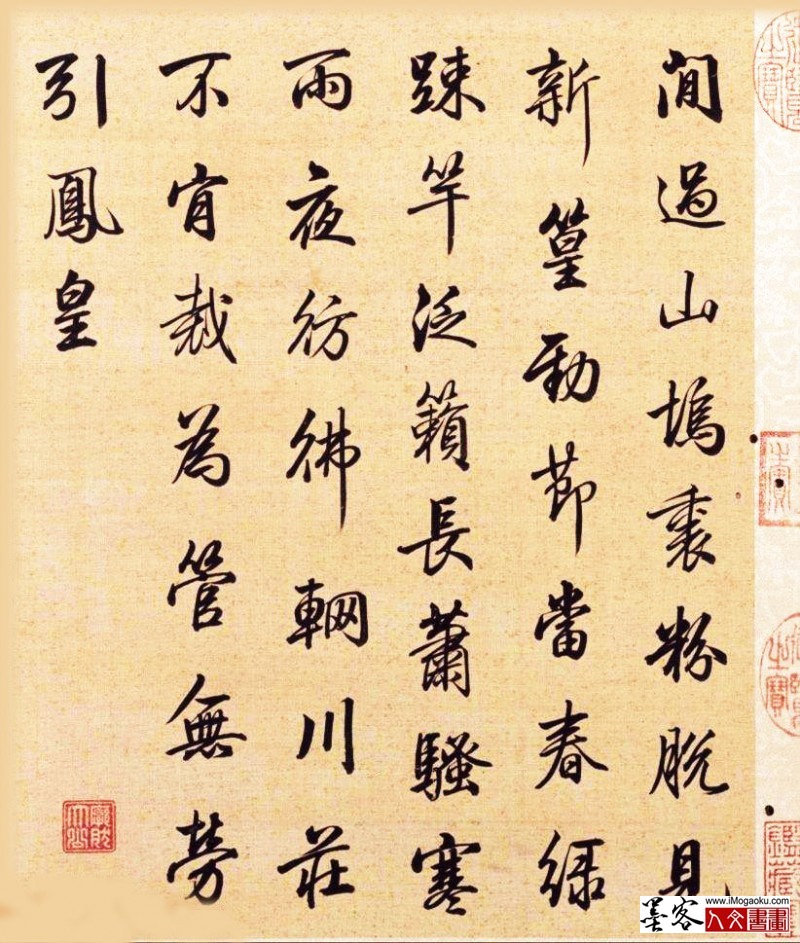 閒過山塢裏粉脫見
新篁勁節當春綠
踈竿泛籟長蕭騷寒
雨夜彷彿輞川莊
不肯裁為管無勞
引鳳皇
墨客
www.iMogaoku.com
人文書畫